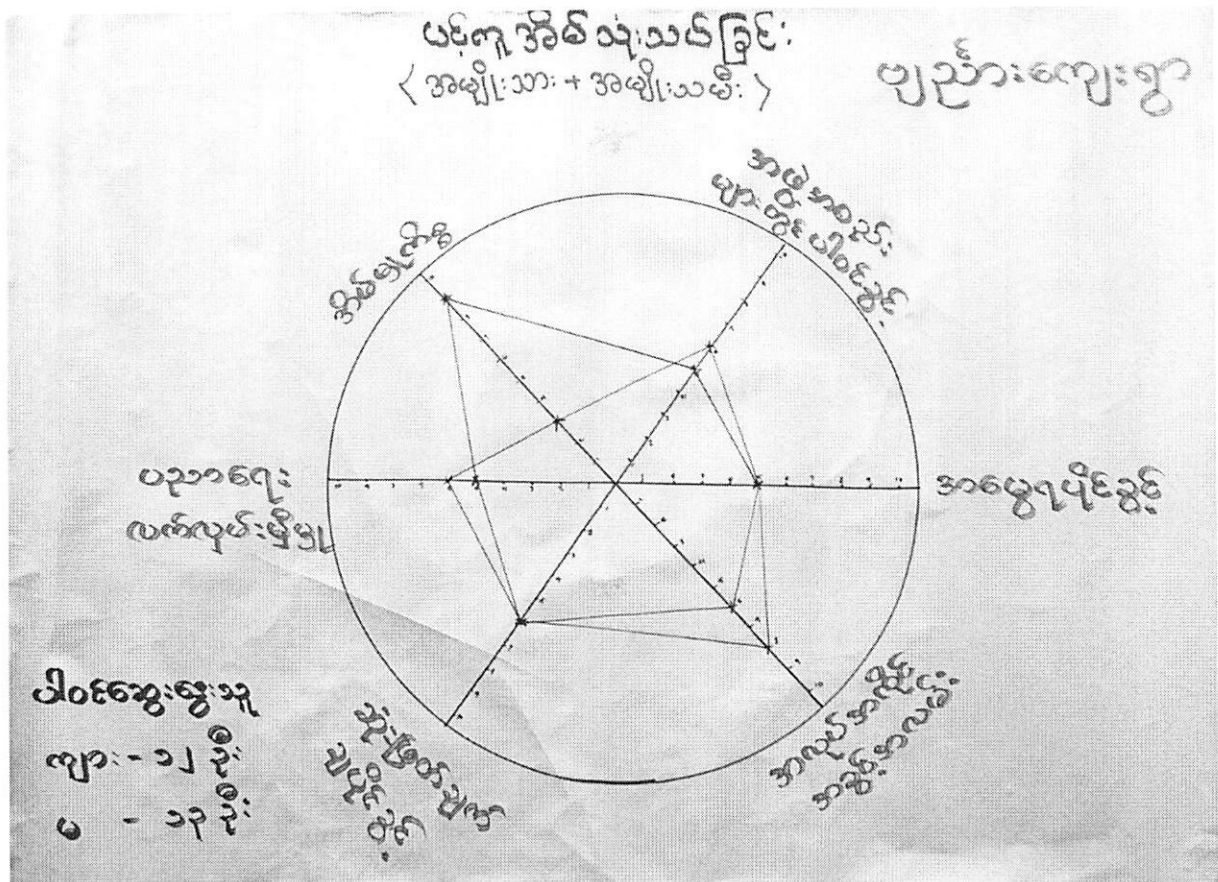 ပင့်ကူအိမ်သုံးသပ်ခြင်း
< အမျိုးသား + အမျိုးသမီး >
ဗျည်းကျေးရွာ
အဖွဲ့အစည်း
များတွင် ပါဝင်ခွင့်
အိမ်မှုကိစ္စ
ပညာရေး
လက်လှမ်းမှီမှု
အမွေရပိုင်ခွင့်
အလုပ်အကိုင်
အခွင့်အလမ်း
ဆုံးဖြတ်ချက်
ချပိုင်
ခွင့်
ပါဝင်ဆွေးနွေးသူ
ကျား - ၁၂ ဦး
မ - ၁၃ ဦး